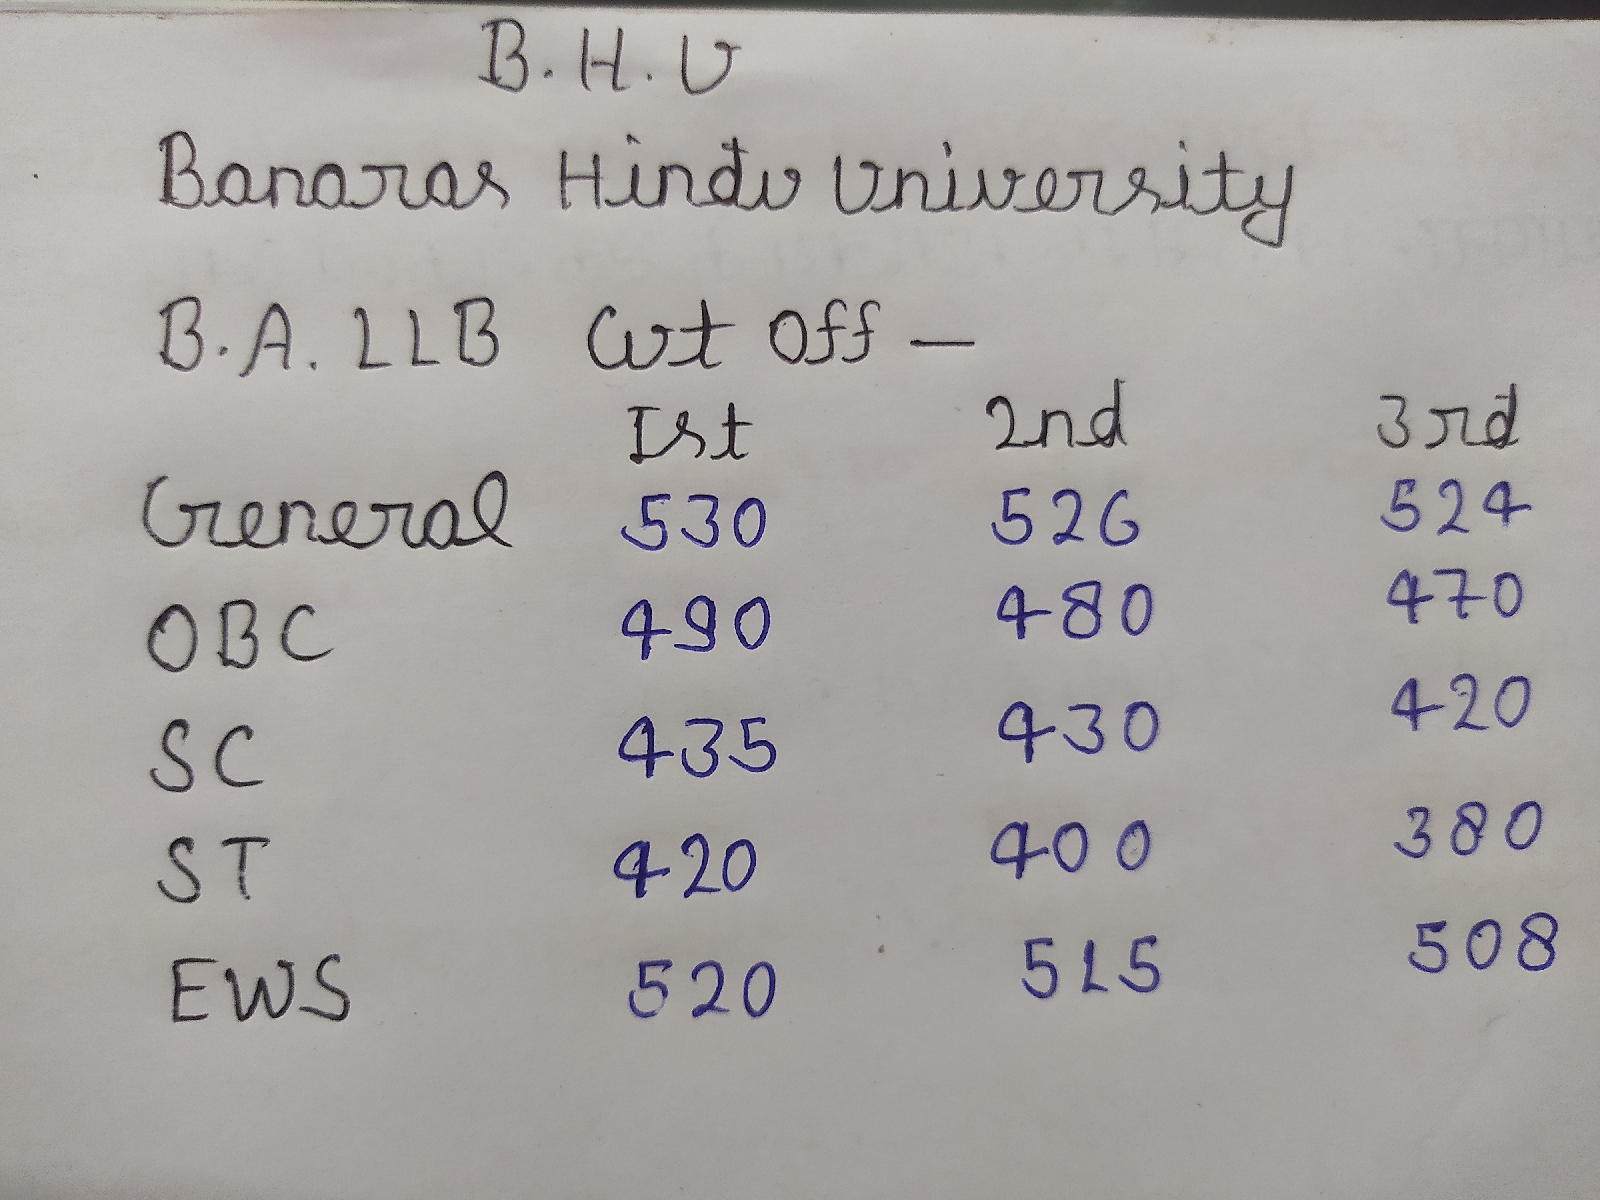 B.H.U
Banaras Hindu University
B.A. LLB Cut Off —
Ist 2nd 3rd
General 530 526 524
OBC 490 480 470
SC 435 430 420
ST 420 400 380
EWS 520 515 508